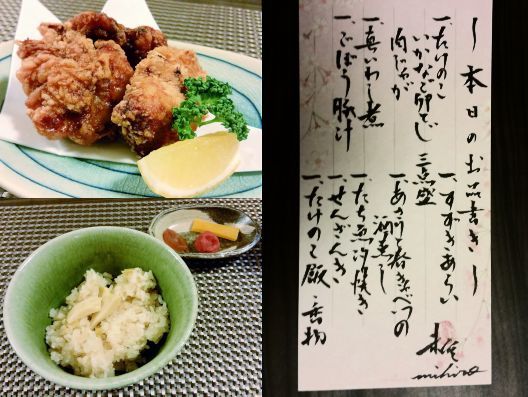 ～本日のお品書き～
一、たけのこ
いかなご卵でし
肉じゃが
三点盛
一、真いわし煮
一、ごぼう豚汁
一、すずきあらい
一、あさりと春キャベツの
酒蒸し
一、たち魚塩焼き
一、せんざんき
一、たけのこ飯・香物